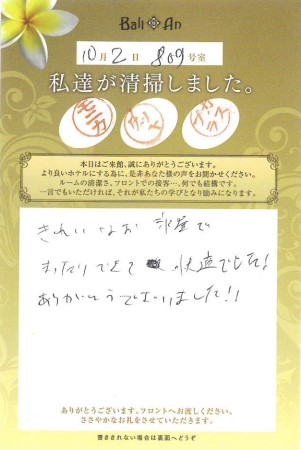 Bali An
10月2日 809号室
私達が清掃しました。
モニカ
チャカ
ラス
本日はご来館、誠にありがとうございます。
より良いホテルにする為に、是非あなた様の声をお聞かせください。
ルームの清潔さ、フロントでの接客…、何でも結構です。
一言でもいただければ、それが私たちの学びとなり励みになります。
きれいなお部屋で
まったりできて 快適でした!
ありがとうございました!!
ありがとうございます。フロントへお渡しください。
ささやかなお礼をさせていただきます。
書ききれない場合は裏面へどうぞ